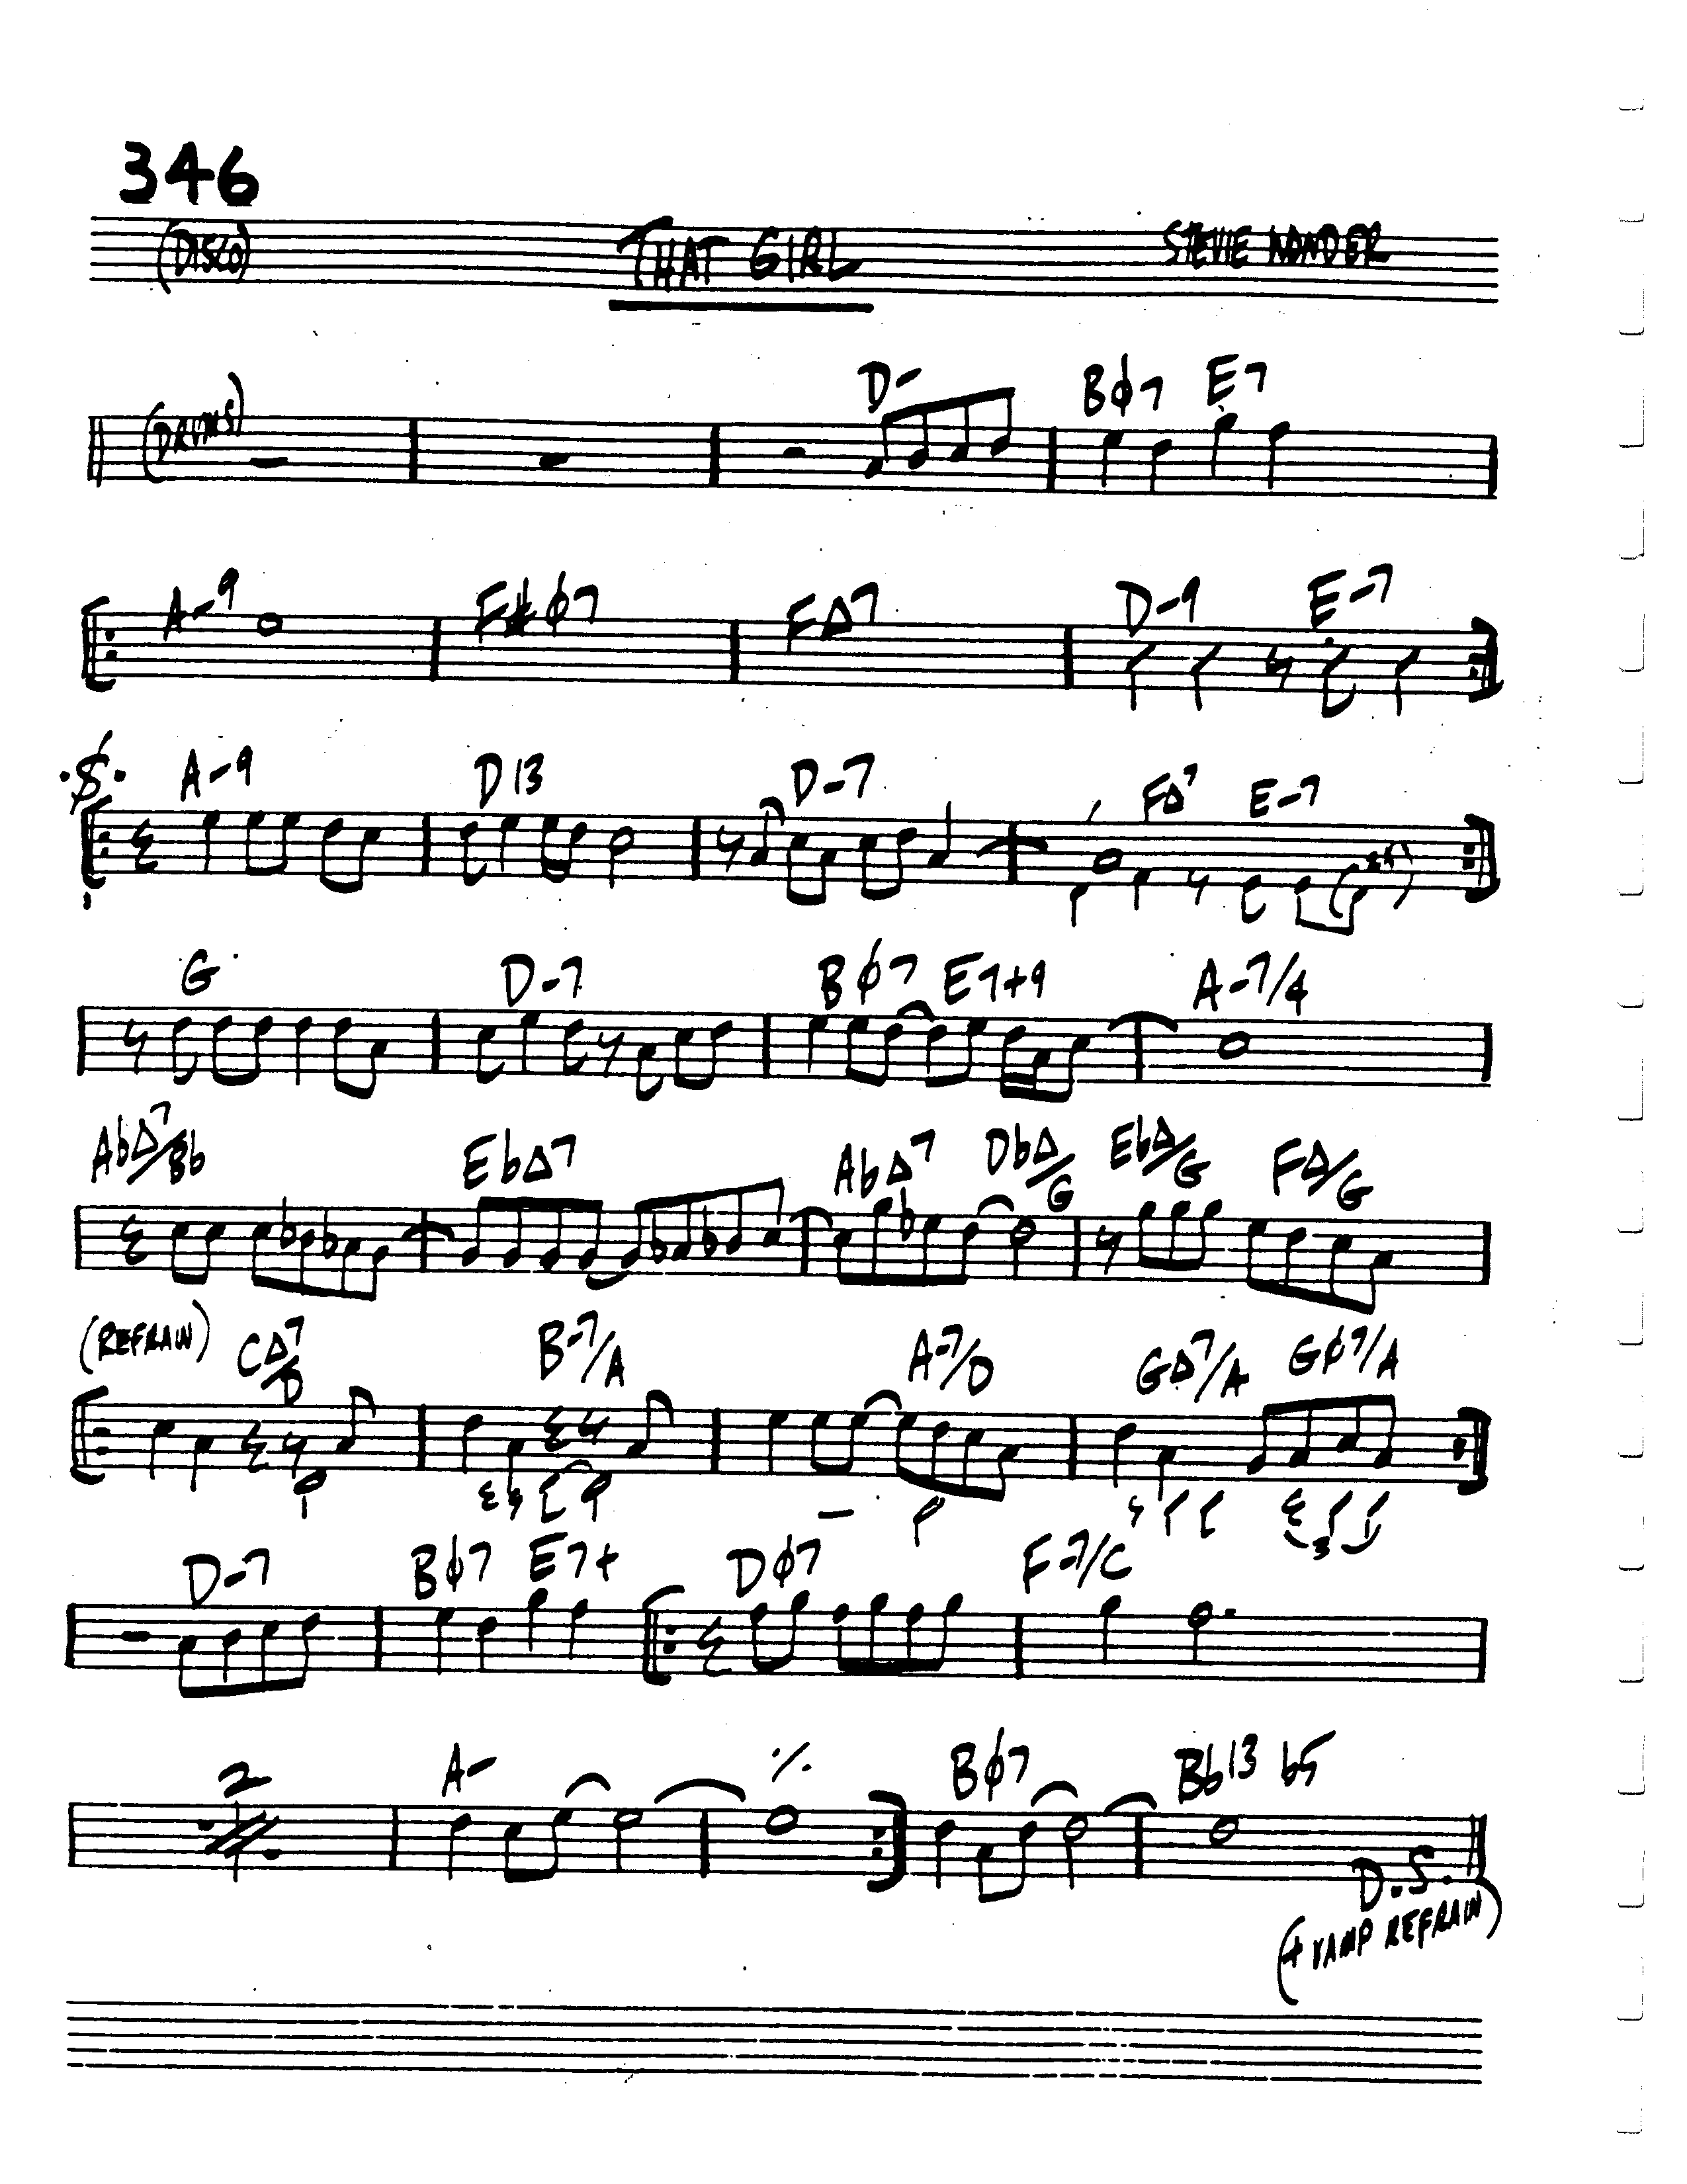 346
(DISCO) THAT GIRL STEVIE WONDER
D- Bø7 E7
(DRUMS)
A-9 F#ø7 FΔ7 D-9 E-7
A-9 D13 D-7 FΔ7 E-7
G D-7 Bø7 E7+9 A-7/4
AbΔ7/Bb EbΔ7 AbΔ7 DbΔ/G EbΔ/G FΔ/G
(REFRAIN) CΔ7/D B-7/A A-7/D GΔ7/A Gø7/A
3
D-7 Bø7 E7+ Dø7 F-7/C
2 A- ٪ Bø7 Bb13 b5
D.S.
(+ VAMP REFRAIN)